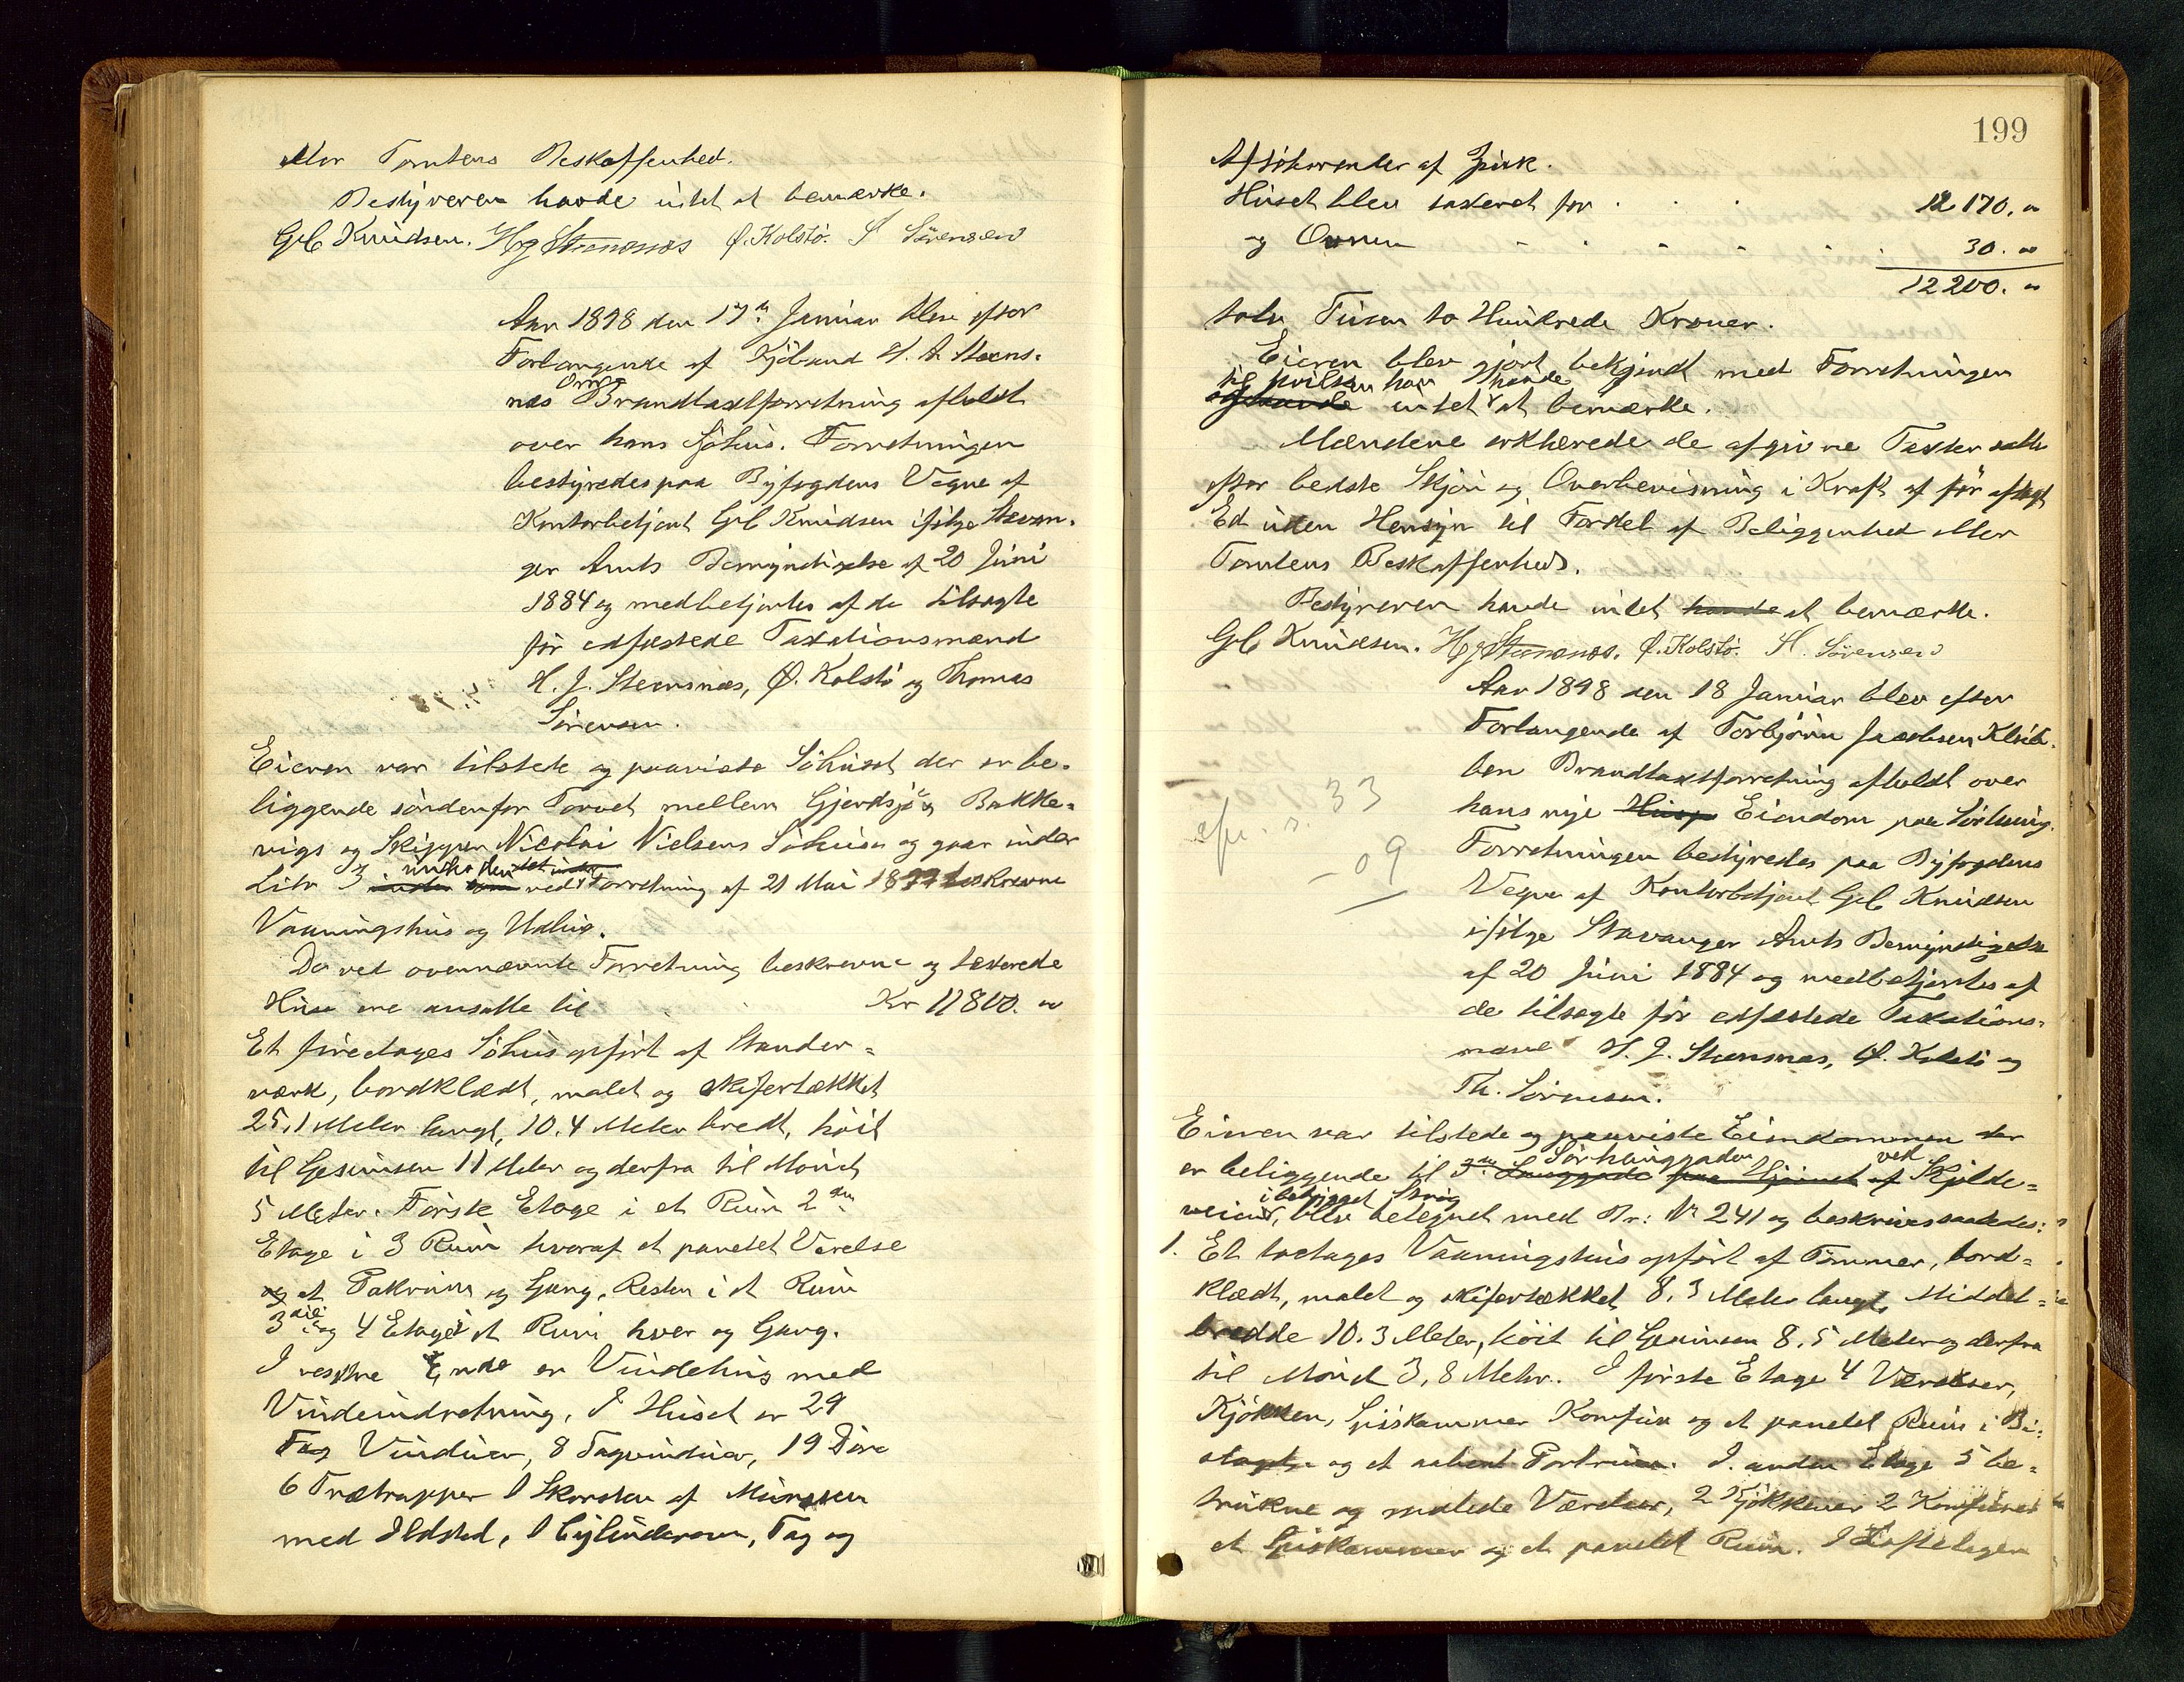 eller Tomtens Beskaffenhed.
Bestyreren havde intet at bemærke.
Gb Knudsen. H J Steensnæs Ø. Kolstö. Th Sörensen
Aar 1898 den 17de Januar blev efter
Forlangende af Kjöbmand H. A. Steens-
næs Om Brandtaxtforretning afholdt
over hans Söhus. Forretningen
bestyredes paa Byfogdens Vegne af
Kontorbetjent Gb Knudsen ifölge Stavan-
ger Amts Bemyndigelse af 20 Juni
1884 og medbetjentes af de tilsagte
för edfæstede Taxationsmænd
H. J. Steensnæs, Ø. Kolstö og Thomas
Sörensen.
Eieren var tilstede og paaviste Söhuset der er be-
liggende söndenfor Torvet mellem Gjerdsjö & Bakke-
vigs og Skipper Nicolai Nielsens Söhuse og gaar under
Litr 3 under den ved Forretning af 21 Mai 1877 beskrevne
Vaaningshus og Udhus.
De ved ovennævnte Forretning beskrevne og taxerede
Huse ere ansatte til Kr 11800. "
Et firedages Söhus opfört af Stander-
værk, bordklædt, malet og skifertækket
25,1 Meter langt, 10.4 Meter bredt, höit
til Gesimsen 11 Meter og derfra til Mönet
5 Meter. Förste Etage i et Rum 2den
Etage i 3 Rum hvoraf et panelet Værelse
og et Pakrum og Gang, Resten i et Rum
3die og 4 Etage i et Rum hver og Gang.
I vestre Ende er Vindehus med
Vindeindretning, I Huset er 29
Fag Vinduer, 8 Tagvinduer, 19 Döre
6 Trætrapper 1 Skorsten af Mursten
med Ildsted, 1 Cylinderovn, Tag og
199
Afløbsrender af Zink.
Huset blev taxeret for 12 170. "
og Ovnen 30. "
12 200. "
tolv Tusen to Hundrede Kroner.
Eieren blev gjort bekjendt med Forretningen
til hvilken han havde intet at bemærke.
Mændene erklærede de afgivne Taxter satte
efter bedste Skjön og Overbevisning i Kraft af för aflagt
Ed uden Hensyn til Fordel af Beliggenhed eller
Tomtens Beskaffenhed.
Bestyreren havde intet havde at bemærke.
Gb Knudsen. H J Steensnæs. Ø. Kolstö. Th. Sörensen
Aar 1898 den 18 Januar blev efter
Forlangende af Torbjörn Jacobsen Klub-
ben Brandtaxtforretning afholdt over
hans nye Eiendom paa Sörhaug.
Forretningen bestyredes paa Byfogdens
Vegne af Kontorbetjent Gb Knudsen
ifölge Stavanger Amts Bemyndigelse
af 20 Juni 1884 og medbetjentes af
de tilsagte för edfæstede Taxations-
mænd H. J. Steensnæs, Ø. Kolstö og
Th. Sörensen.
33
09
Eieren var tilstede og paaviste Eiendommen der
er beliggende til Sörhauggaden ved Skjolde-
veien, i bebygget Strög blev betegnet med Br: No 241 og beskrives saaledes:
1. Et toetages Vaaningshus opfört af Tömmer, bord-
klædt, malet og skifertækket 8,3 Meter langt, Middel-
bredde 10.3 Meter, höit til Gesimsen 8.5 Meter og derfra
til Mönet 3,8 Meter. I förste Etage 4 Værelser,
Kjökken, Spiskammer Komfur og et panelet Rum i Bi-
slaget og et aabent Portrum. I anden Etage 5 be-
trukne og malede Værelser, 2 Kjökkener 2 Komfurer
et Spiskammer og et panelet Rum. I Loftetagen